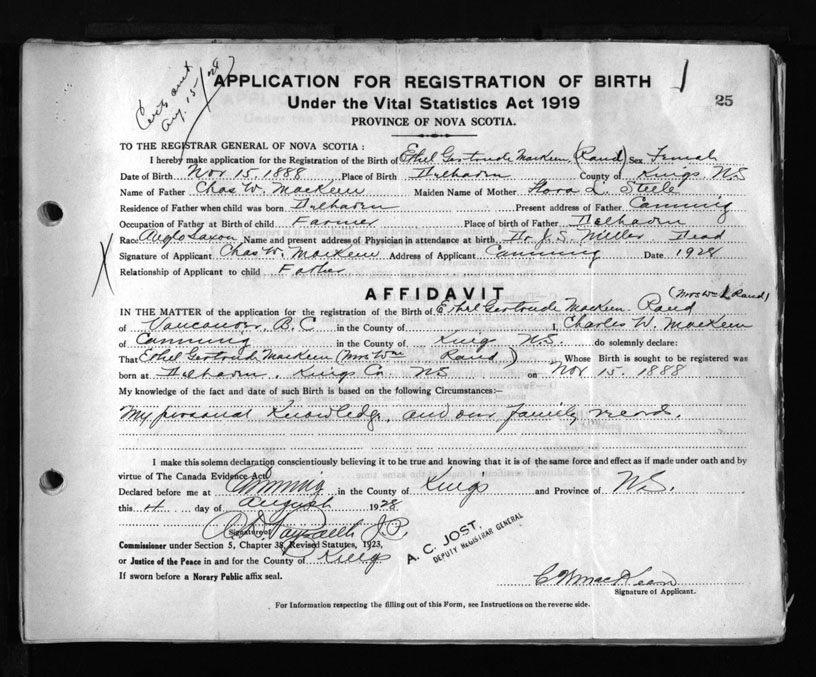 Certs sent
Aug. 15/28
APPLICATION FOR REGISTRATION OF BIRTH
25
Under the Vital Statistics Act 1919
PROVINCE OF NOVA SCOTIA.
TO THE REGISTRAR GENERAL OF NOVA SCOTIA:
I hereby make application for the Registration of the Birth of Ethel Gertrude MacKeen (Rand) Sex Female
Date of Birth Nov 15. 1888 Place of Birth Delhaven County of Kings N.S
Name of Father Chas W. MacKeen Maiden Name of Mother Flora L. Steele
Residence of Father when child was born Delhaven Present address of Father Canning
Occupation of Father at Birth of child Farmer Place of birth of Father Delhaven
Race Anglo Saxon Name and present address of Physician in attendance at birth Dr J. S. Miller Dead
Signature of Applicant Chas W. MacKeen Address of Applicant Canning Date 1928
Relationship of Applicant to child Father
AFFIDAVIT
(Mrs Wm Rand)
IN THE MATTER of the application for the registration of the Birth of Ethel Gertrude MacKeen Rand
of Vancouver, B.C in the County of I, Charles W. MacKeen
of Canning in the County of Kings N.S. do solemnly declare:
That Ethel Gertrude MacKeen (Mrs Wm Rand) Whose Birth is sought to be registered was
born at Delhaven, Kings Co. NS on Nov 15. 1888
My knowledge of the fact and date of such Birth is based on the following Circumstances:—
My personal Knowledge, and our family record.
I make this solemn declaration conscientiously believing it to be true and knowing that it is of the same force and effect as if made under oath and by
virtue of The Canada Evidence Act
Declared before me at Canning in the County of Kings and Province of N.S.
this 4 day of August 1928
Signature of J.P.
Commissioner under Section 5, Chapter 38, Revised Statutes, 1923,
or Justice of the Peace in and for the County of Kings
If sworn before a Norary Public affix seal.
A. C. JOST,
DEPUTY REGISTRAR GENERAL
C W MacKeen
Signature of Applicant.
For Information respecting the filling out of this Form, see Instructions on the reverse side.